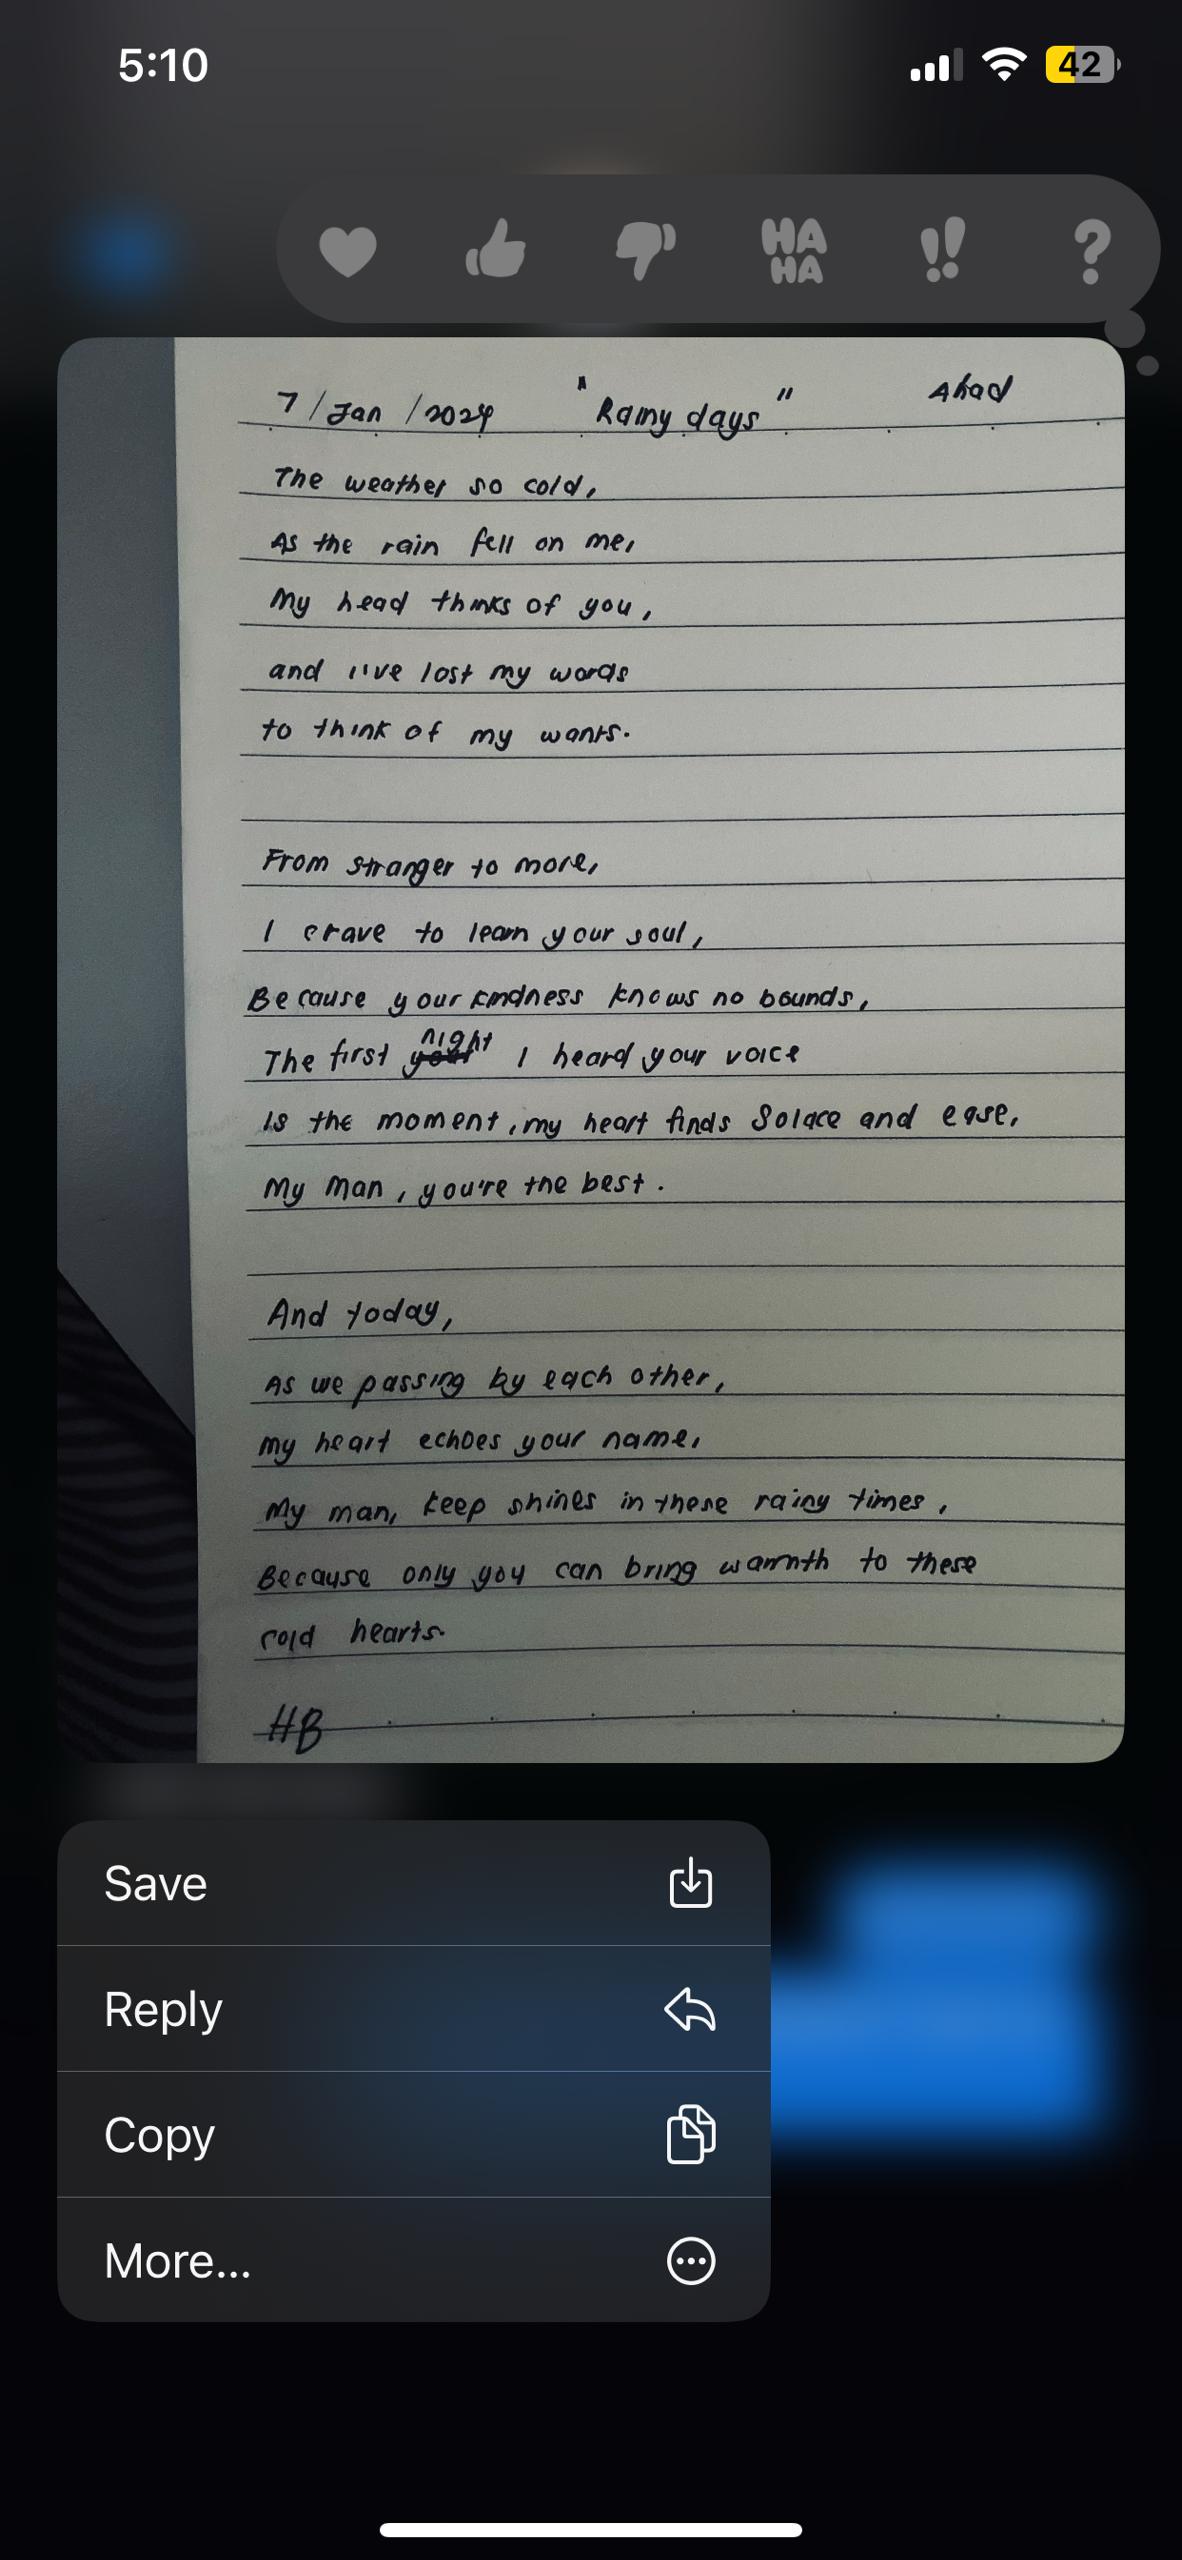 5:10
42
HA
HA
!!
?
7/Jan/2024 "Rainy days" Ahad
The weather so cold,
As the rain fell on me,
My head thinks of you,
and i've lost my words
to think of my wants.
From stranger to more,
I crave to learn your soul,
Because your kindness knows no bounds,
The first night I heard your voice
Is the moment, my heart finds Solace and ease,
My Man, you're the best.
And today,
As we passing by each other,
my heart echoes your name,
My man, keep shines in these rainy times,
Because only you can bring warmth to these
cold hearts.
HB
Save
Reply
Copy
More...